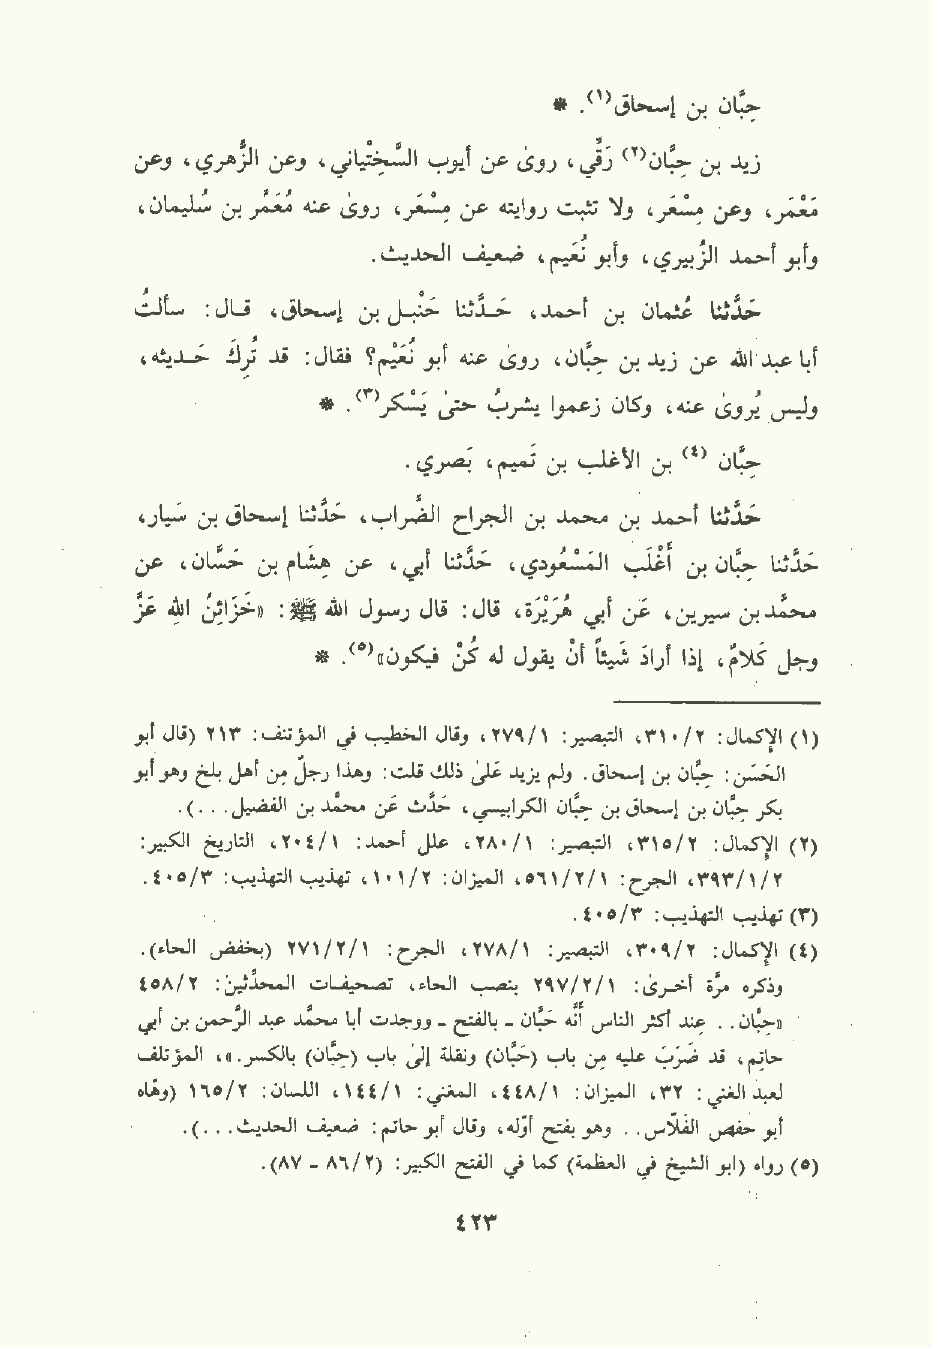 حِبَّان بن إسحاق(١). *
زيد بن حِبَّان(٢) رَقِّي، روىٰ عن أيوب السَّخْتِياني، وعن الزُّهري، وعن
مَعْمَر، وعن مِسْعَر، ولا تثبت روايته عن مِسْعَر، وروىٰ عنه مُعَمَّر بن سُليمان،
وأبو أحمد الزُّبيري، وأبو نُعَيم، ضعيف الحديث.
حَدَّثنا عُثمان بن أحمد، حَدَّثنا حَنْبَل بن إسحاق، قال: سألتُ
أبا عبد الله عن زيد بن حِبَّان، روىٰ عنه أبو نُعَيْم؟ فقال: قد تُرِكَ حَديثه،
وليس يُروىٰ عنه، وكان زعموا يشربُ حتىٰ يَسْكر(٣). *
حِبَّان(٤) بن الأغلب بن تَميم، بَصري.
حَدَّثنا أحمد بن محمد بن الجراح الضَّراب، حَدَّثنا إسحاق بن سَيار،
حَدَّثنا حِبَّان بن أَغْلَب المَسْعُودي، حَدَّثنا أبي، عن هِشَام بن حَسَّان، عن
محمَّد بن سيرين، عَن أبي هُرَيْرَة، قال: قال رسول الله ﷺ: «خَزَائِنُ اللهِ عَزَّ
وجل كَلامٌ، إذا أرادَ شَيئاً أنْ يقول له كُنْ فيكون»(٥). *
(١) الإكمال: ٣١٠/٢، التبصير: ٢٧٩/١، وقال الخطيب في المؤتنف: ٢١٣ (قال أبو
الحَسَن: حِبَّان بن إسحاق. ولم يزيد علىٰ ذلك قلت: وهذا رجلٌ مِن أهل بلخ وهو أبو
بكر حِبَّان بن إسحاق بن حِبَّان الكرابيسي، حَدَّث عَن محمَّد بن الفضيل. . .).
(٢) الإكمال: ٣١٥/٢، التبصير: ٢٨٠/١، علل أحمد: ٢٠٤/١، التاريخ الكبير:
٣٩٣/١/٢، الجرح: ٥٦١/٢/١، الميزان: ١٠١/٢، تهذيب التهذيب: ٤٠٥/٣.
(٣) تهذيب التهذيب: ٤٠٥/٣.
(٤) الإكمال: ٣٠٩/٢، التبصير: ٢٧٨/١، الجرح: ٢٧١/٢/١ (بخفض الحاء).
وذكره مرَّة أخرىٰ: ٢٩٧/٢/١ بنصب الحاء، تصحيفات المحدِّثين: ٤٥٨/٢
«حِبَّان. . عند أكثر الناس أنَّه حَبَّان - بالفتح - ووجدت أبا محمَّد عبد الرَّحمن بن أبي
حاتِم، قد ضَرَبَ عليه مِن باب (حَبَّان) ونقلهَ إلىٰ باب (حِبَّان) بالكسر.»، المؤتلف
لعبد الغني: ٣٢، الميزان: ٤٤٨/١، المغني: ١٤٤/١، اللسان: ١٦٥/٢ (وهَّاه
أبو حفص الفَلَّاس. . وهو بفتح أوَّله، وقال أبو حاتِم: ضعيف الحديث. . .).
(٥) رواه (ابو الشيخ في العظمة) كما في الفتح الكبير: (٨٦/٢ - ٨٧).
٤٢٣